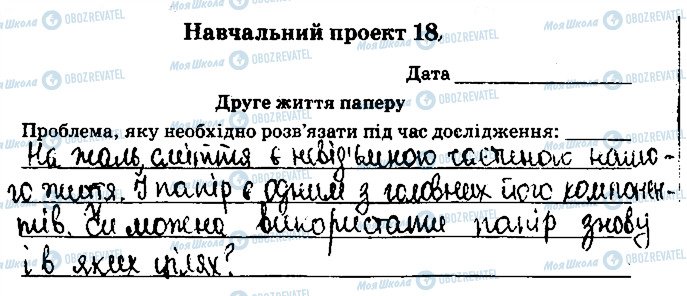 Навчальний проект 18,
Дата
Друге життя паперу
Проблема, яку необхідно розв'язати під час дослідження:
На жаль, сміття є невід'ємною частиною нашо-
го життя. І папір є одним з головних його компонен-
тів. Чи можна використати папір знову
і в яких цілях?